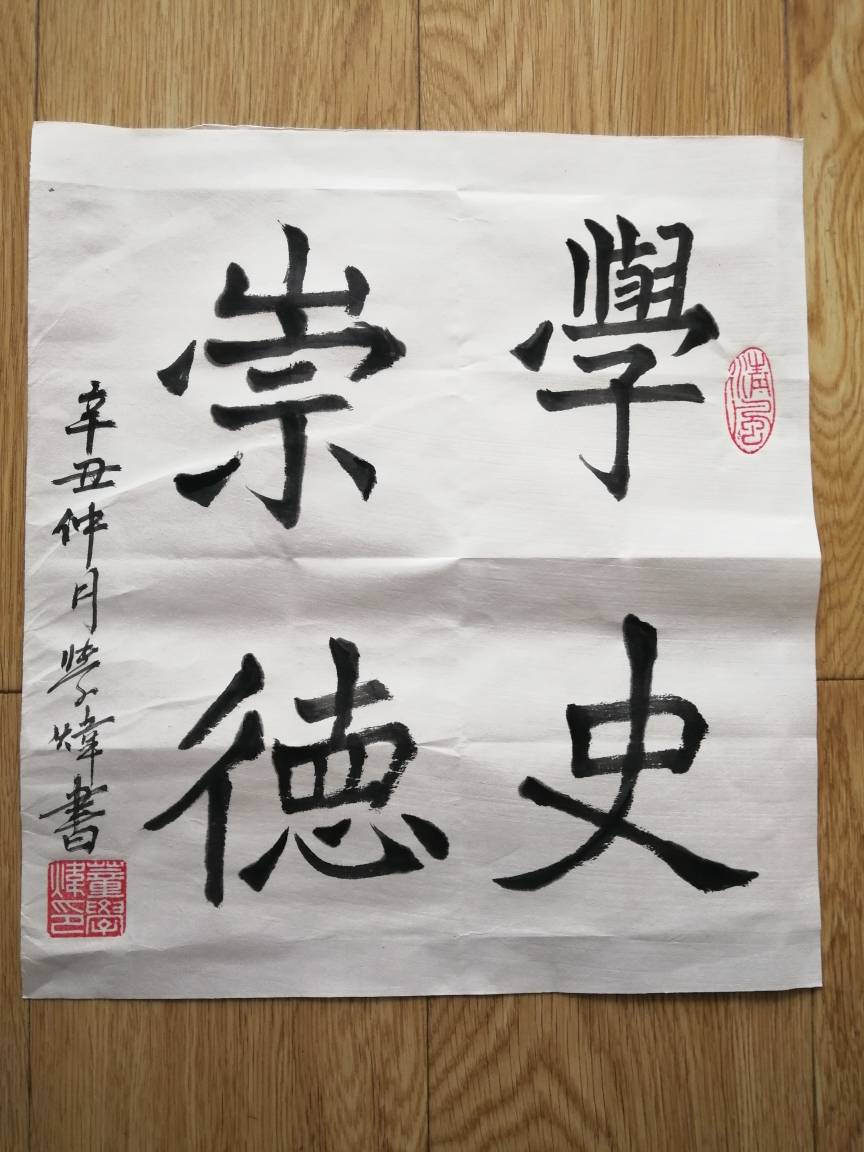 學史
崇德
辛丑仲月学煒書
清風
董學煒印